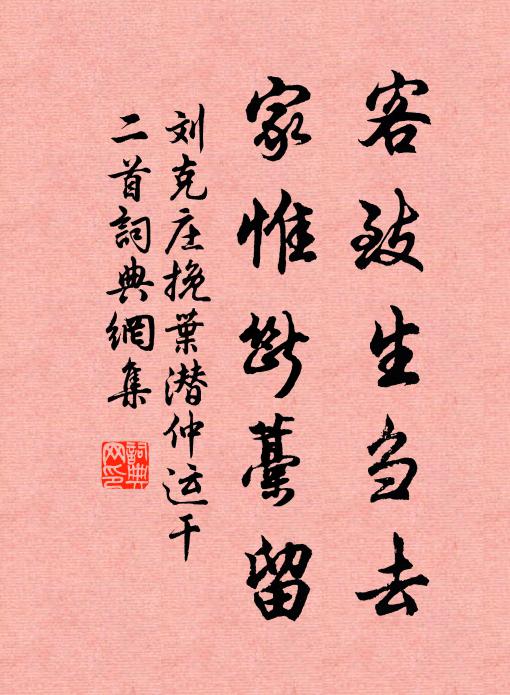 客致生刍去
家惟断藁留
刘克庄挽葉潜仲运干
二首詞典網集
詞典网印